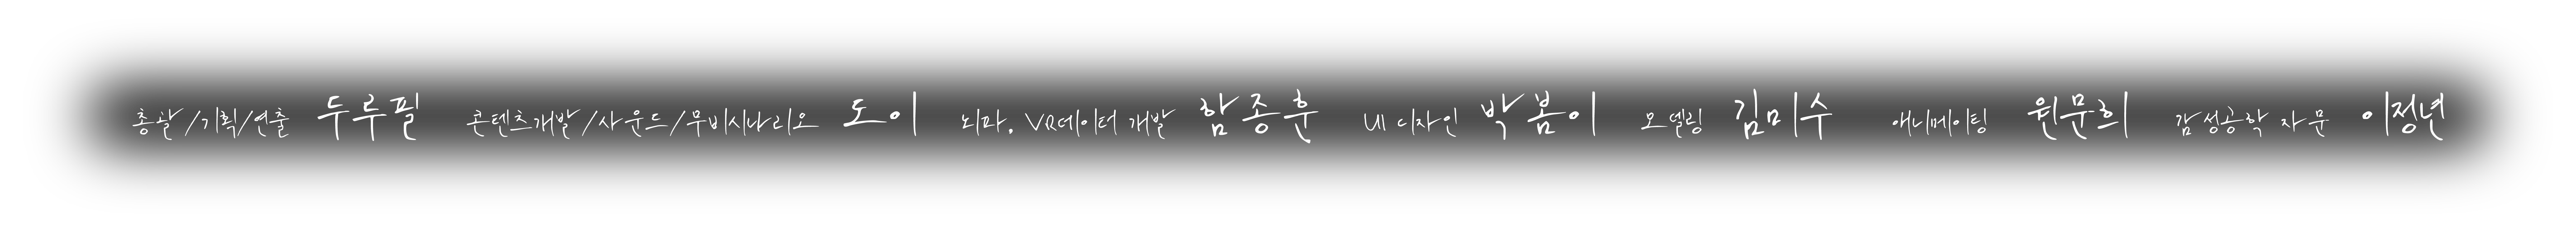 총괄/기획/연출 두루필 콘텐츠개발/사운드/무비시나리오 도이 뇌파, VR데이터 개발 함종훈 UI 디자인 박봄이 모델링 김미수 애니메이팅 원문희 감성공학 자문 이정년